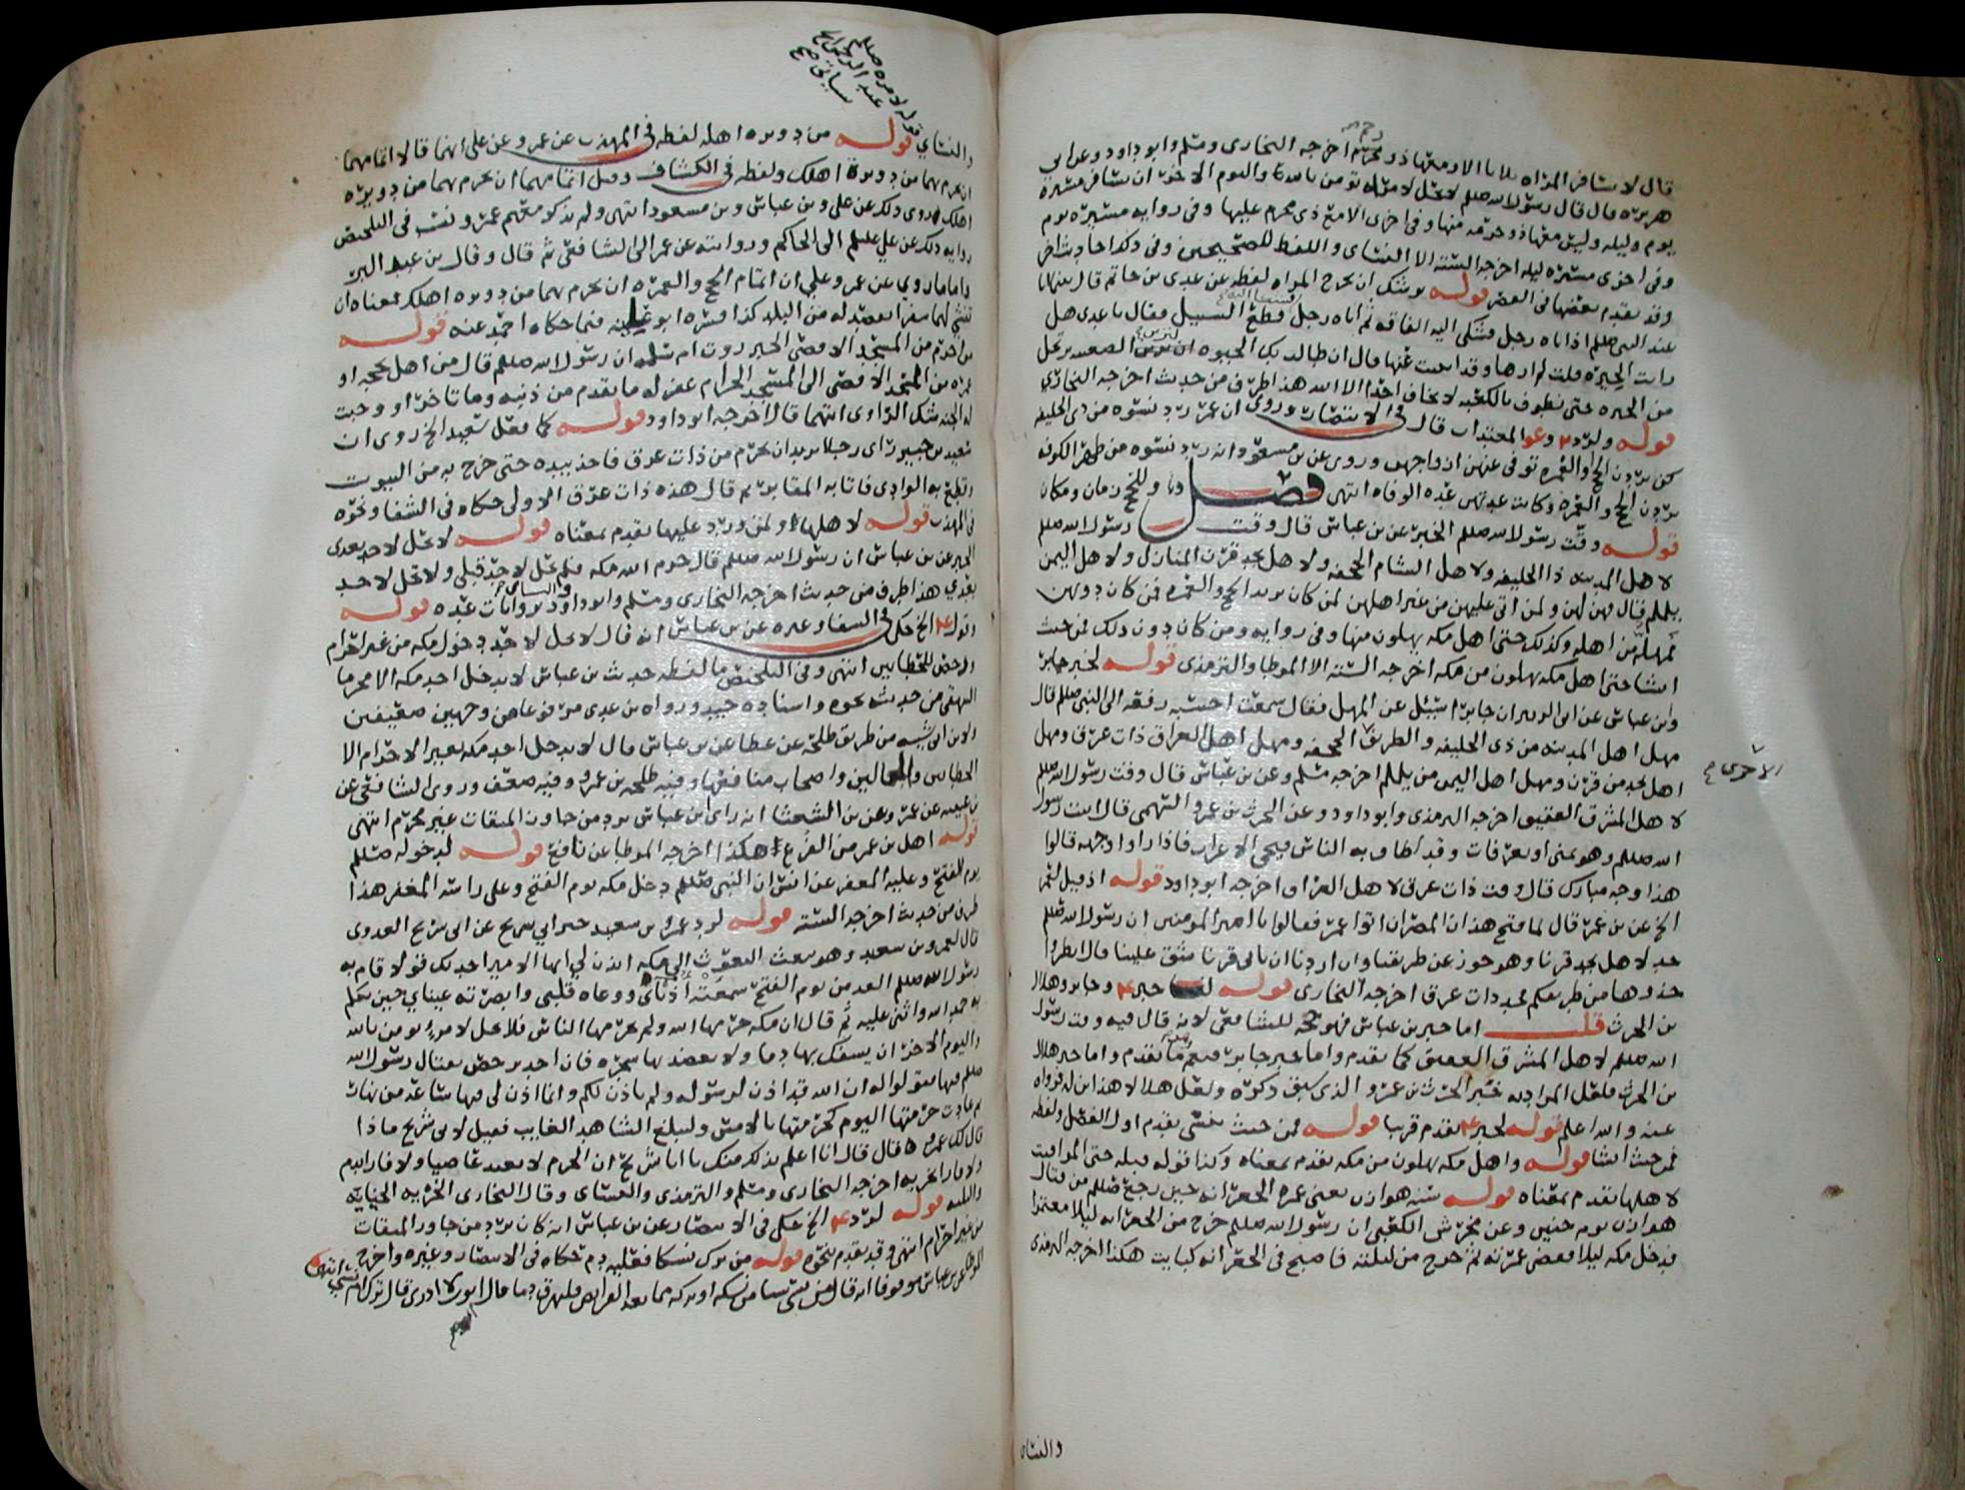 قال لا تسافر المراه ثلاثا الا ومعها ذو محرم اخرجه البخارى ومسلم وابو داود وعن ابي
هريره قال قال رسول الله صللم لا تحل لامراه تومن بالله واليوم الاخر ان تسافر مسيرة
يوم وليله وليس معها ذو حرمه منها وفى اخرى الا مع ذى محرم عليها وفى روايه مسيرة يوم
وفى اخرى مسيرة ليله اخرجه السته الا النسائى واللفظ للصحيحين وفى ذكر احاديث اخر
وقد تقدم بعضها فى العصر قوله يوشك ان تخرج المراه لفظه عن عدى بن حاتم قال بينا انا
عند النبى صللم اذ اتاه رجل فشكى اليه الفاقه ثم اتاه رجل قطع السبيل فقال يا عدى هل
رايت الحيرة قلت لم ارها وقد انبئت عنها قال ان طالت بك الحيوه لترين الضعينه ترتحل
من الحيره حتى تطوف بالكعبه لا تخاف احدا الا الله هذا طرف من حديث اخرجه البخارى
قوله ولرد والمعتدات قال فى الانتصار وروى ان عمر رد نسوه من ذى الحليفه
كن يردن الحج والعمره توفى عنهن ازواجهن وروى عن بن مسعود انه رد نسوه من ظهر الكوفه
يردن الحج والعمره وكانت عدتهن عده الوفاه انتهى فصل وللحج زمان ومكان
قوله وقت رسول الله صللم الخبر عن بن عباس قال وقت رسول الله صللم
لاهل المدينه ذا الحليفه ولاهل الشام الجحفه ولاهل نجد قرن المنازل ولاهل اليمن
يلملم قال فهن لهن ولمن اتى عليهن من غير اهلهن لمن كان يريد الحج والعمره فمن كان دونهن
فمهله من اهله وكذلك حتى اهل مكه يهلون منها وفى روايه ومن كان دون ذلك فمن حيث
انشا حتى اهل مكه يهلون من مكه اخرجه السته الا الموطا والترمذى قوله لخبر جابر
وابن عباس عن ابى الزبير ان جابرا سئل عن المهل فقال سمعت احسبه رفعه الى النبى صللم قال
مهل اهل المدينه من ذى الحليفه والطريق الجحفه ومهل اهل العراق ذات عرق ومهل
الاخرى صح
اهل نجد من قرن ومهل اهل اليمن من يلملم اخرجه مسلم وعن بن عباس قال وقت رسول الله صللم
لاهل المشرق العقيق اخرجه الترمذى وابو داود وعن الحرث بن عمرو السهمى قال اتيت رسول
الله صللم وهو بمنى او بعرفات وقد اطاف به الناس فيجى الاعراب فاذا راوا وجهه قالوا
هذا وجه مبارك قال وقت ذات عرق لاهل العراق اخرجه ابو داود قوله اذ قيل لعمر
الخ عن بن عمر قال لما فتح هذان المصران اتوا عمر فقالوا يا امير المومنين ان رسول الله صللم
حد لاهل نجد قرنا وهو جور عن طريقنا وان اردنا ان ناتى قرنا شق علينا قال انظروا
حذوها من طريقكم فحد ذات عرق اخرجه البخارى قوله خبر وجابر وهلال
بن الحرث قلت اما خبر بن عباس فهو حجه للشافعى لانه قال فيه وقت رسول
الله صللم لاهل المشرق العقيق كما تقدم واما خبر جابر فنعم كما تقدم واما خبر هلال
بن الحرث فلعل المراد به خبر الحرث بن عمرو الذى سبق ذكره ولعل هلالا هذا ابن له فرواه
عنه والله اعلم قوله لخبر تقدم قريبا قوله فمن حيث ينشى تقدم اول الفصل ولفظه
فمن حيث انشا قوله واهل مكه يهلون من مكه تقدم بمعناه وكذا قوله قبله حتى المواقيت
لاهلها تقدم بمعناه قوله سنه هوازن يعنى عمره الجعرانه حين رجع صللم من قتال
هوازن يوم حنين وعن محرش الكعبى ان رسول الله صللم خرج من الجعرانه ليلا معتمرا
فدخل مكه ليلا فقضى عمرته ثم خرج من ليلته فاصبح فى الجعرانه كبايت هكذا اخرجه الترمذى
والنسائى
قوله لامره صللم
عبد الرحمن الخ
سياتى صح
والنسائي قوله من دويره اهله لفظه فى المهذب عن عمر وعن على انهما قالا اتمامهما
ان تحرم بهما من دويرة اهلك ولفظه فى الكشاف وقيل اتمامهما ان تحرم بهما من دويره
اهلك روى ذلك عن على وبن عباس وبن مسعود انتهى ولم يذكر معهم عمر ونسب فى التلخيص
روايه ذلك عن علي علسلم الى الحاكم وروايته عن عمر الى الشافعى ثم قال وقال بن عبد البر
واما ما روي عن عمر وعلي ان اتمام الحج والعمره ان تحرم بهما من دويره اهلك فمعناه ان
تنشي لهما سفرا تقصد له من البلد كذا فسره ابو عيينه فيما حكاه احمد عنه قوله
من احرم من المسجد الاقصى الخبر روت ام سلمه ان رسول الله صللم قال من اهل بحجه او
عمره من المسجد الاقصى الى المسجد الحرام غفر له ما تقدم من ذنبه وما تاخر او وجبت
له الجنه شك الراوى ايتهما قال اخرجه ابو داود قوله كما فعل سعيد الخ روى ان
سعيد بن جبير راى رجلا يريد ان يحرم من ذات عرق فاخذ بيده حتى خرج به من البيوت
وقطع به الوادى فاتا به المقابر ثم قال هذه ذات عرق الاولى حكاه فى الشفا ونحوه
فى المهذب قوله لاهلها ولمن ورد عليها تقدم بمعناه قوله لا تحل لاحد بعدى
الخبر عن بن عباس ان رسول الله صللم قال حرم الله مكه فلم تحل لاحد قبلى ولا تحل لاحد
بعدي هذا طرف من حديث اخرجه البخارى ومسلم وابو داود والنسائى بروايات عده قوله
الخ حكى فى الشفا وغيره عن بن عباس انه قال لا يحل لاحد دخول مكه من غير احرام
ورخص للحطابين انتهى وفى التلخيص ما لفظه حديث بن عباس لا يدخل احد مكه الا محرما
البيهقى من حديثه نحوه واسناده جيد ورواه بن عدى مرفوعا من وجهين ضعيفين
ولابن ابى شيبه من طريق طلحه عن عطا عن بن عباس قال لا يدخل احد مكه بغير الاحرام الا
الحطابين والعمالين واصحاب منافعها وفيه طلحه بن عمرو وفيه ضعف وروى الشافعى عن
بن عيينه عن عمرو عن بن الشعشا انه راى بن عباس يرد من جاوز الميقات غير محرم انتهى
قوله اهل بن عمر من الفرع هكذا اخرجه الموطا عن نافع قوله لدخوله صللم
يوم الفتح وعليه المغفر عن انس ان النبى صللم دخل مكه يوم الفتح وعلى راسه المغفر هذا
طرف من حديث اخرجه السته قوله لرد عمرو بن سعيد خبر ابي شريح عن ابى شريح العدوى
قال لعمرو بن سعيد وهو يبعث البعوث الى مكه ائذن لي ايها الامير احدثك قولا قام به
رسول الله صللم الغد من يوم الفتح سمعته اذناى ووعاه قلبى وابصرته عيناي حين تكلم
به حمد الله واثنى عليه ثم قال ان مكه حرمها الله ولم يحرمها الناس فلا يحل لامرء يومن بالله
واليوم الاخر ان يسفك بها دما ولا يعضد بها شجره فان احد ترخص بقتال رسول الله
صللم فيها فقولوا له ان الله قد اذن لرسوله ولم ياذن لكم وانما اذن لى فيها ساعه من نهار
ثم عادت حرمتها اليوم كحرمتها بالامس وليبلغ الشاهد الغايب فقيل لابى شريح ماذا
قال لك عمرو قال قال انا اعلم بذلك منك يا ابا شريح ان الحرم لا يعيذ عاصيا ولا فارا بدم
ولا فارا بخربه اخرجه البخارى ومسلم والترمذى والنسائى وقال البخارى الخربه الجنايه
والبليه قوله لرد الخ حكى فى الانتصار عن بن عباس انه كان يرد من جاوز الميقات
من غير احرام انتهى وقد تقدم نحوه قوله من ترك نسكا فعليه دم حكاه فى الانتصار وغيره واخرج
الموطا عن بن عباس موقوفا انه قال من نسى شيا من نسكه او تركه مما بعد الفرايض فليهرق دما قال ايوب لا ادرى قال ترك ام نسي انتهى